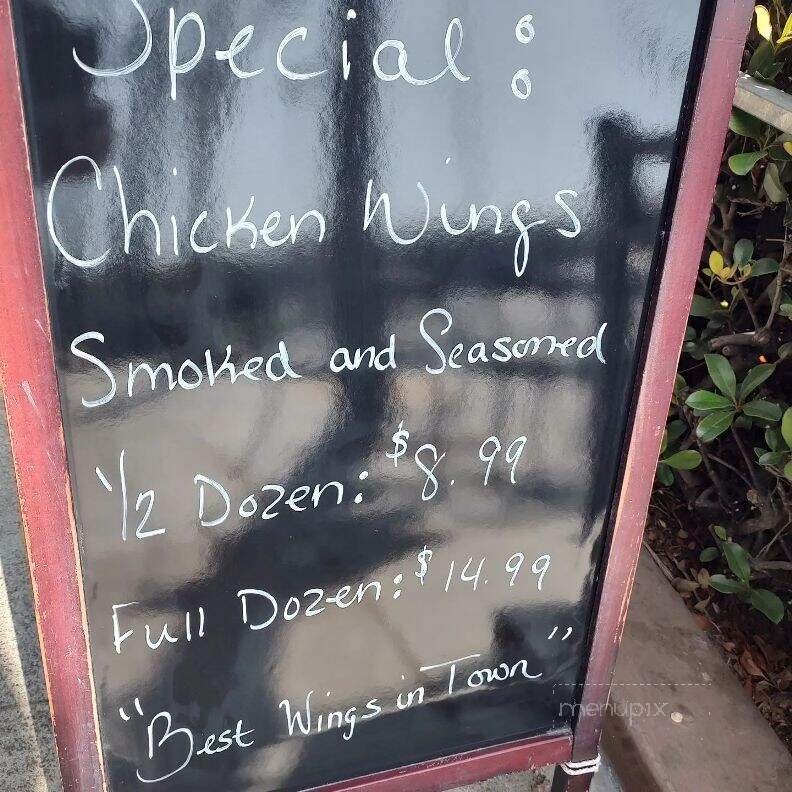 Special:
Chicken Wings
Smoked and Seasoned
1/2 Dozen: $8.99
Full Dozen: $14.99
"Best Wings in Town"
menupix